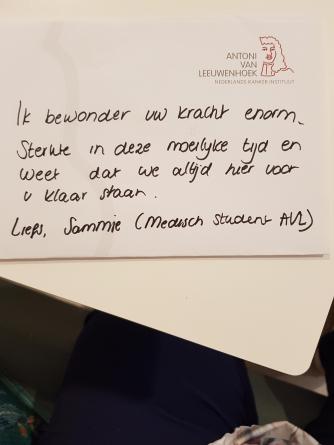 ANTONI
VAN
LEEUWENHOEK
NEDERLANDS KANKER INSTITUUT
Ik bewonder uw kracht enorm.
Sterkte in deze moeilyke tijd en
weet dat we altijd hier voor
u klaar staan.
Liefs, Sammie (Medisch Student AVL)